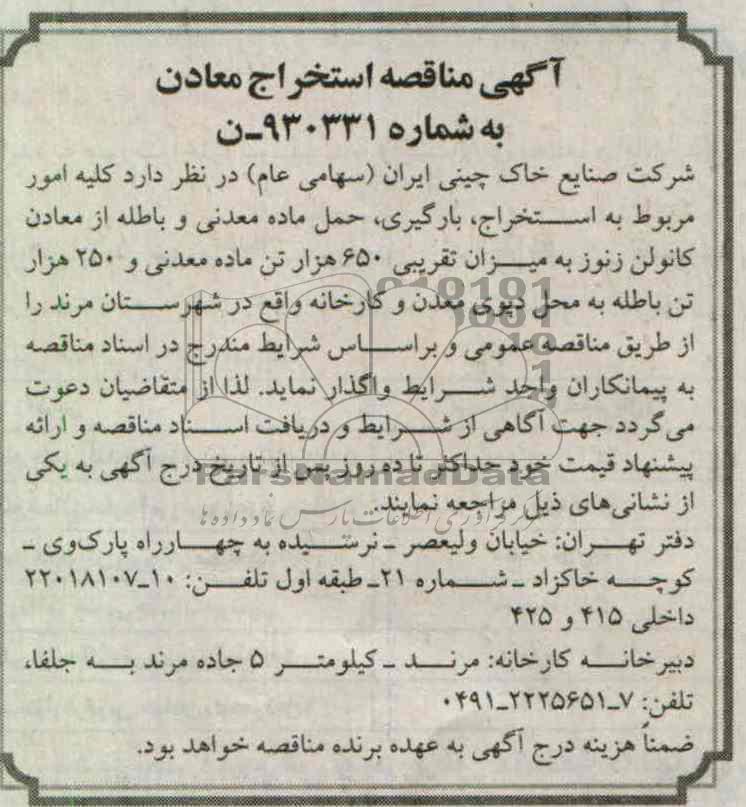 آگهی مناقصه استخراج معادن
به شماره ۹۳۰۳۳۱-ن
شرکت صنایع خاک چینی ایران (سهامی عام) در نظر دارد کلیه امور
مربوط به استخراج، بارگیری، حمل ماده معدنی و باطله از معادن
کانولن زنوز به میزان تقریبی ۶۵۰ هزار تن ماده معدنی و ۲۵۰ هزار
تن باطله به محل دپوی معدن و کارخانه واقع در شهرستان مرند را
از طریق مناقصه عمومی و براساس شرایط مندرج در اسناد مناقصه
به پیمانکاران واجد شرایط واگذار نماید. لذا از متقاضیان دعوت
می‌گردد جهت آگاهی از شرایط و دریافت اسناد مناقصه و ارائه
پیشنهاد قیمت خود حداکثر تا ده روز پس از تاریخ درج آگهی به یکی
ParsNamadData
از نشانی‌های ذیل مراجعه نمایند.
مرکز فرآوری اطلاعات پارس نماد داده‌ها
دفتر تهران: خیابان ولیعصر ـ نرسیده به چهارراه پارک‌وی ـ
کوچه خاکزاد ـ شماره ۲۱ـ طبقه اول تلفن: ۱۰ـ۲۲۰۱۸۱۰۷
داخلی ۴۱۵ و ۴۲۵
دبیرخانه کارخانه: مرند ـ کیلومتر ۵ جاده مرند به جلفا،
تلفن: ۷ـ۲۲۲۵۶۵۱ـ۰۴۹۱
ضمناً هزینه درج آگهی به عهده برنده مناقصه خواهد بود.